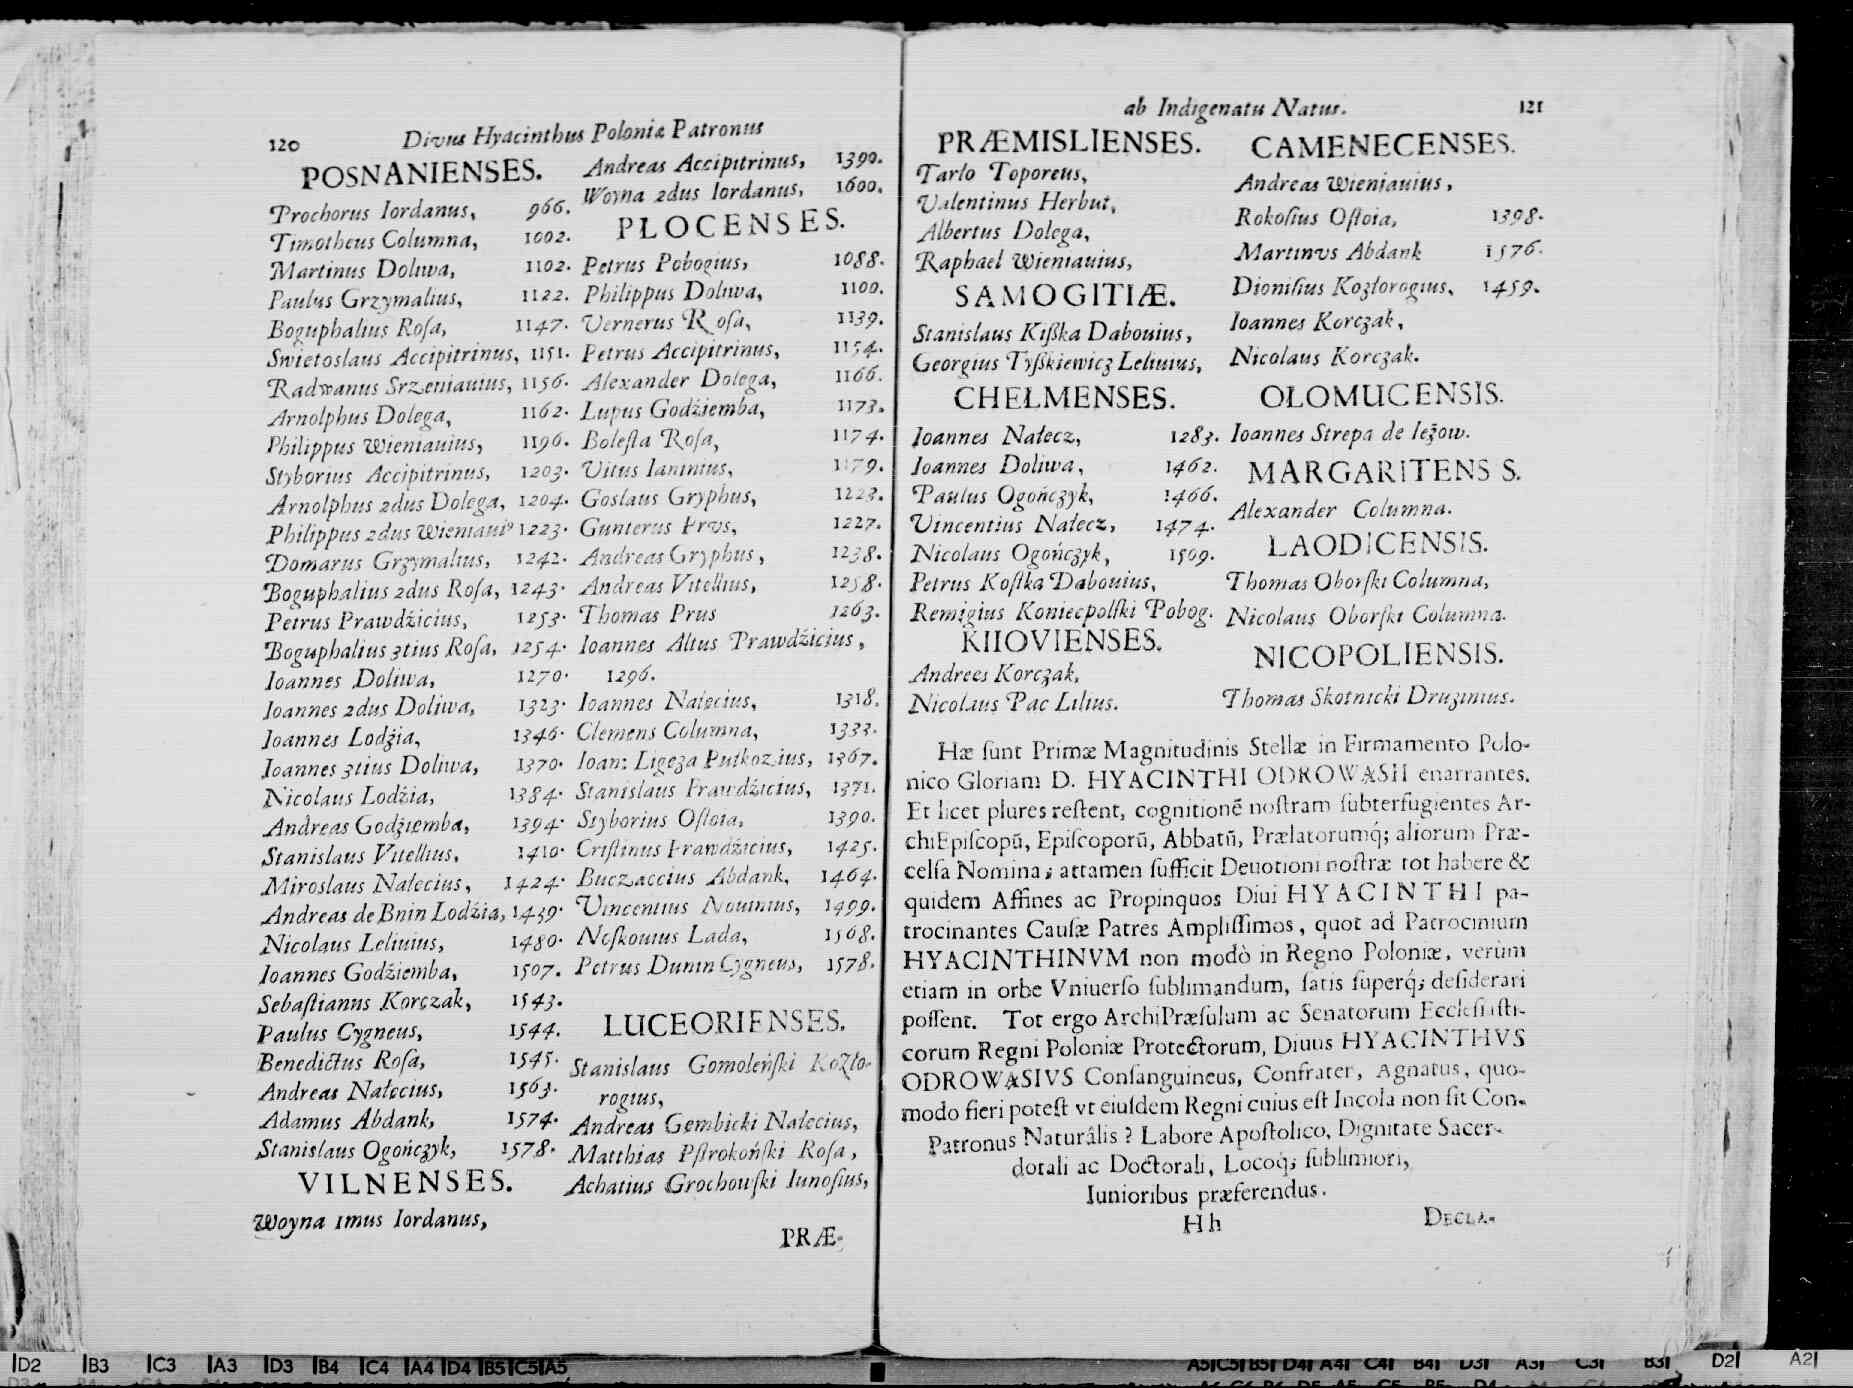 120 Divus Hyacinthus Poloniæ Patronus
POSNANIENSES.
Prochorus Iordanus, 966.
Timotheus Columna, 1002.
Martinus Doliwa, 1102.
Paulus Grzymalius, 1122.
Boguphalius Roſa, 1147.
Swietoslaus Accipitrinus, 1151.
Radwanus Srzeniauius, 1156.
Arnolphus Dolega, 1162.
Philippus Wieniauius, 1196.
Styborius Accipitrinus, 1203.
Arnolphus 2dus Dolega, 1204.
Philippus 2dus Wieniauiꝰ 1223.
Domarus Grzymalius, 1242.
Boguphalius 2dus Roſa, 1243.
Petrus Prawdźicius, 1253.
Boguphalius 3tius Roſa, 1254.
Ioannes Doliwa, 1270.
Ioannes 2dus Doliwa, 1323.
Ioannes Lodźia, 1346.
Ioannes 3tius Doliwa, 1370.
Nicolaus Lodźia, 1384.
Andreas Godźiemba, 1394.
Stanislaus Vitellius, 1410.
Miroslaus Nałecius, 1424.
Andreas de Bnin Lodźia, 1439.
Nicolaus Leliuius, 1480.
Ioannes Godźiemba, 1507.
Sebaſtianus Korczak, 1543.
Paulus Cygneus, 1544.
Benedictus Roſa, 1545.
Andreas Nałecius, 1563.
Adamus Abdank, 1574.
Stanislaus Ogończyk, 1578.
VILNENSES.
Woyna 1mus Iordanus,
Andreas Accipitrinus, 1390.
Woyna 2dus Iordanus, 1600.
PLOCENSES.
Petrus Pobogius, 1088.
Philippus Doliwa, 1100.
Vernerus Roſa, 1139.
Petrus Accipitrinus, 1154.
Alexander Dolega, 1166.
Lupus Godźiemba, 1173.
Boleſta Roſa, 1174.
Vitus Ianinius, 1179.
Goslaus Gryphus, 1223.
Gunterus Prvs, 1227.
Andreas Gryphus, 1238.
Andreas Vitellius, 1258.
Thomas Prus 1263.
Ioannes Altus Prawdźicius,
1296.
Ioannes Nałecius, 1318.
Clemens Columna, 1333.
Ioan: Ligęza Pułkozius, 1367.
Stanislaus Prawdźicius, 1371.
Styborius Oſtoia, 1390.
Criſtinus Prawdźicius, 1425.
Buczaccius Abdank, 1464.
Vincentius Nouinius, 1499.
Noſkouius Lada, 1568.
Petrus Dunin Cygneus, 1578.
LUCEORIENSES.
Stanislaus Gomoleńſki Kozło-
rogius,
Andreas Gembicki Nalecius,
Matthias Pſtrokońſki Roſa,
Achatius Grochowſki Iunoſius,
PRÆ-
ab Indigenatu Natus. 121
PRÆMISLIENSES.
Tarlo Toporeus,
Valentinus Herbut,
Albertus Dolega,
Raphael Wieniauius,
SAMOGITIÆ.
Stanislaus Kiſßka Dabouius,
Georgius Tyſßkiewicz Leliuius,
CHELMENSES.
Ioannes Nałecz, 1283.
Ioannes Doliwa, 1462.
Paulus Ogończyk, 1466.
Vincentius Nałecz, 1474.
Nicolaus Ogończyk, 1509.
Petrus Koſtka Dabouius,
Remigius Koniecpolſki Pobog.
KIIOVIENSES.
Andrees Korczak,
Nicolaus Pac Lilius.
CAMENECENSES.
Andreas Wieniauius,
Rokoſius Oſtoia, 1398.
Martinvs Abdank 1576.
Dioniſius Kozłorogius, 1459.
Ioannes Korczak,
Nicolaus Korczak.
OLOMUCENSIS.
Ioannes Strepa de Ieżow.
MARGARITENS S.
Alexander Columna.
LAODICENSIS.
Thomas Oborſki Columna,
Nicolaus Oborſki Columna.
NICOPOLIENSIS.
Thomas Skotnicki Druzinius.
Hæ ſunt Primæ Magnitudinis Stellæ in Firmamento Polo-
nico Gloriam D. HYACINTHI ODROWASII enarrantes.
Et licet plures reſtent, cognitionē noſtram ſubterfugientes Ar-
chiEpiſcopū, Epiſcoporū, Abbatū, Prælatorumq́; aliorum Præ-
celſa Nomina; attamen ſufficit Deuotioni noſtræ tot habere &
quidem Affines ac Propinquos Diui HYACINTHI pa-
trocinantes Cauſæ Patres Ampliſſimos, quot ad Patrocinium
HYACINTHINVM non modò in Regno Poloniæ, verùm
etiam in orbe Vniuerſo ſublimandum, ſatis ſuperq́; deſiderari
poſſent. Tot ergo ArchiPræſulum ac Senatorum Eccleſiaſti-
corum Regni Poloniæ Protectorum, Diuus HYACINTHVS
ODROWASIVS Conſanguineus, Confrater, Agnatus, quo-
modo fieri poteſt vt eiuſdem Regni cuius eſt Incola non ſit Con-
Patronus Naturâlis? Labore Apoſtolico, Dignitate Sacer-
dotali ac Doctorali, Locoq́; ſublimiori,
Iunioribus præferendus.
Hh DECLA-
D2 B3 C3 A3 D3 B4 C4 A4 D4 B5 C5 A5
A5 C5 B5 D4 A4 C4 B4 D3 A3 C3 B3 D2 A2